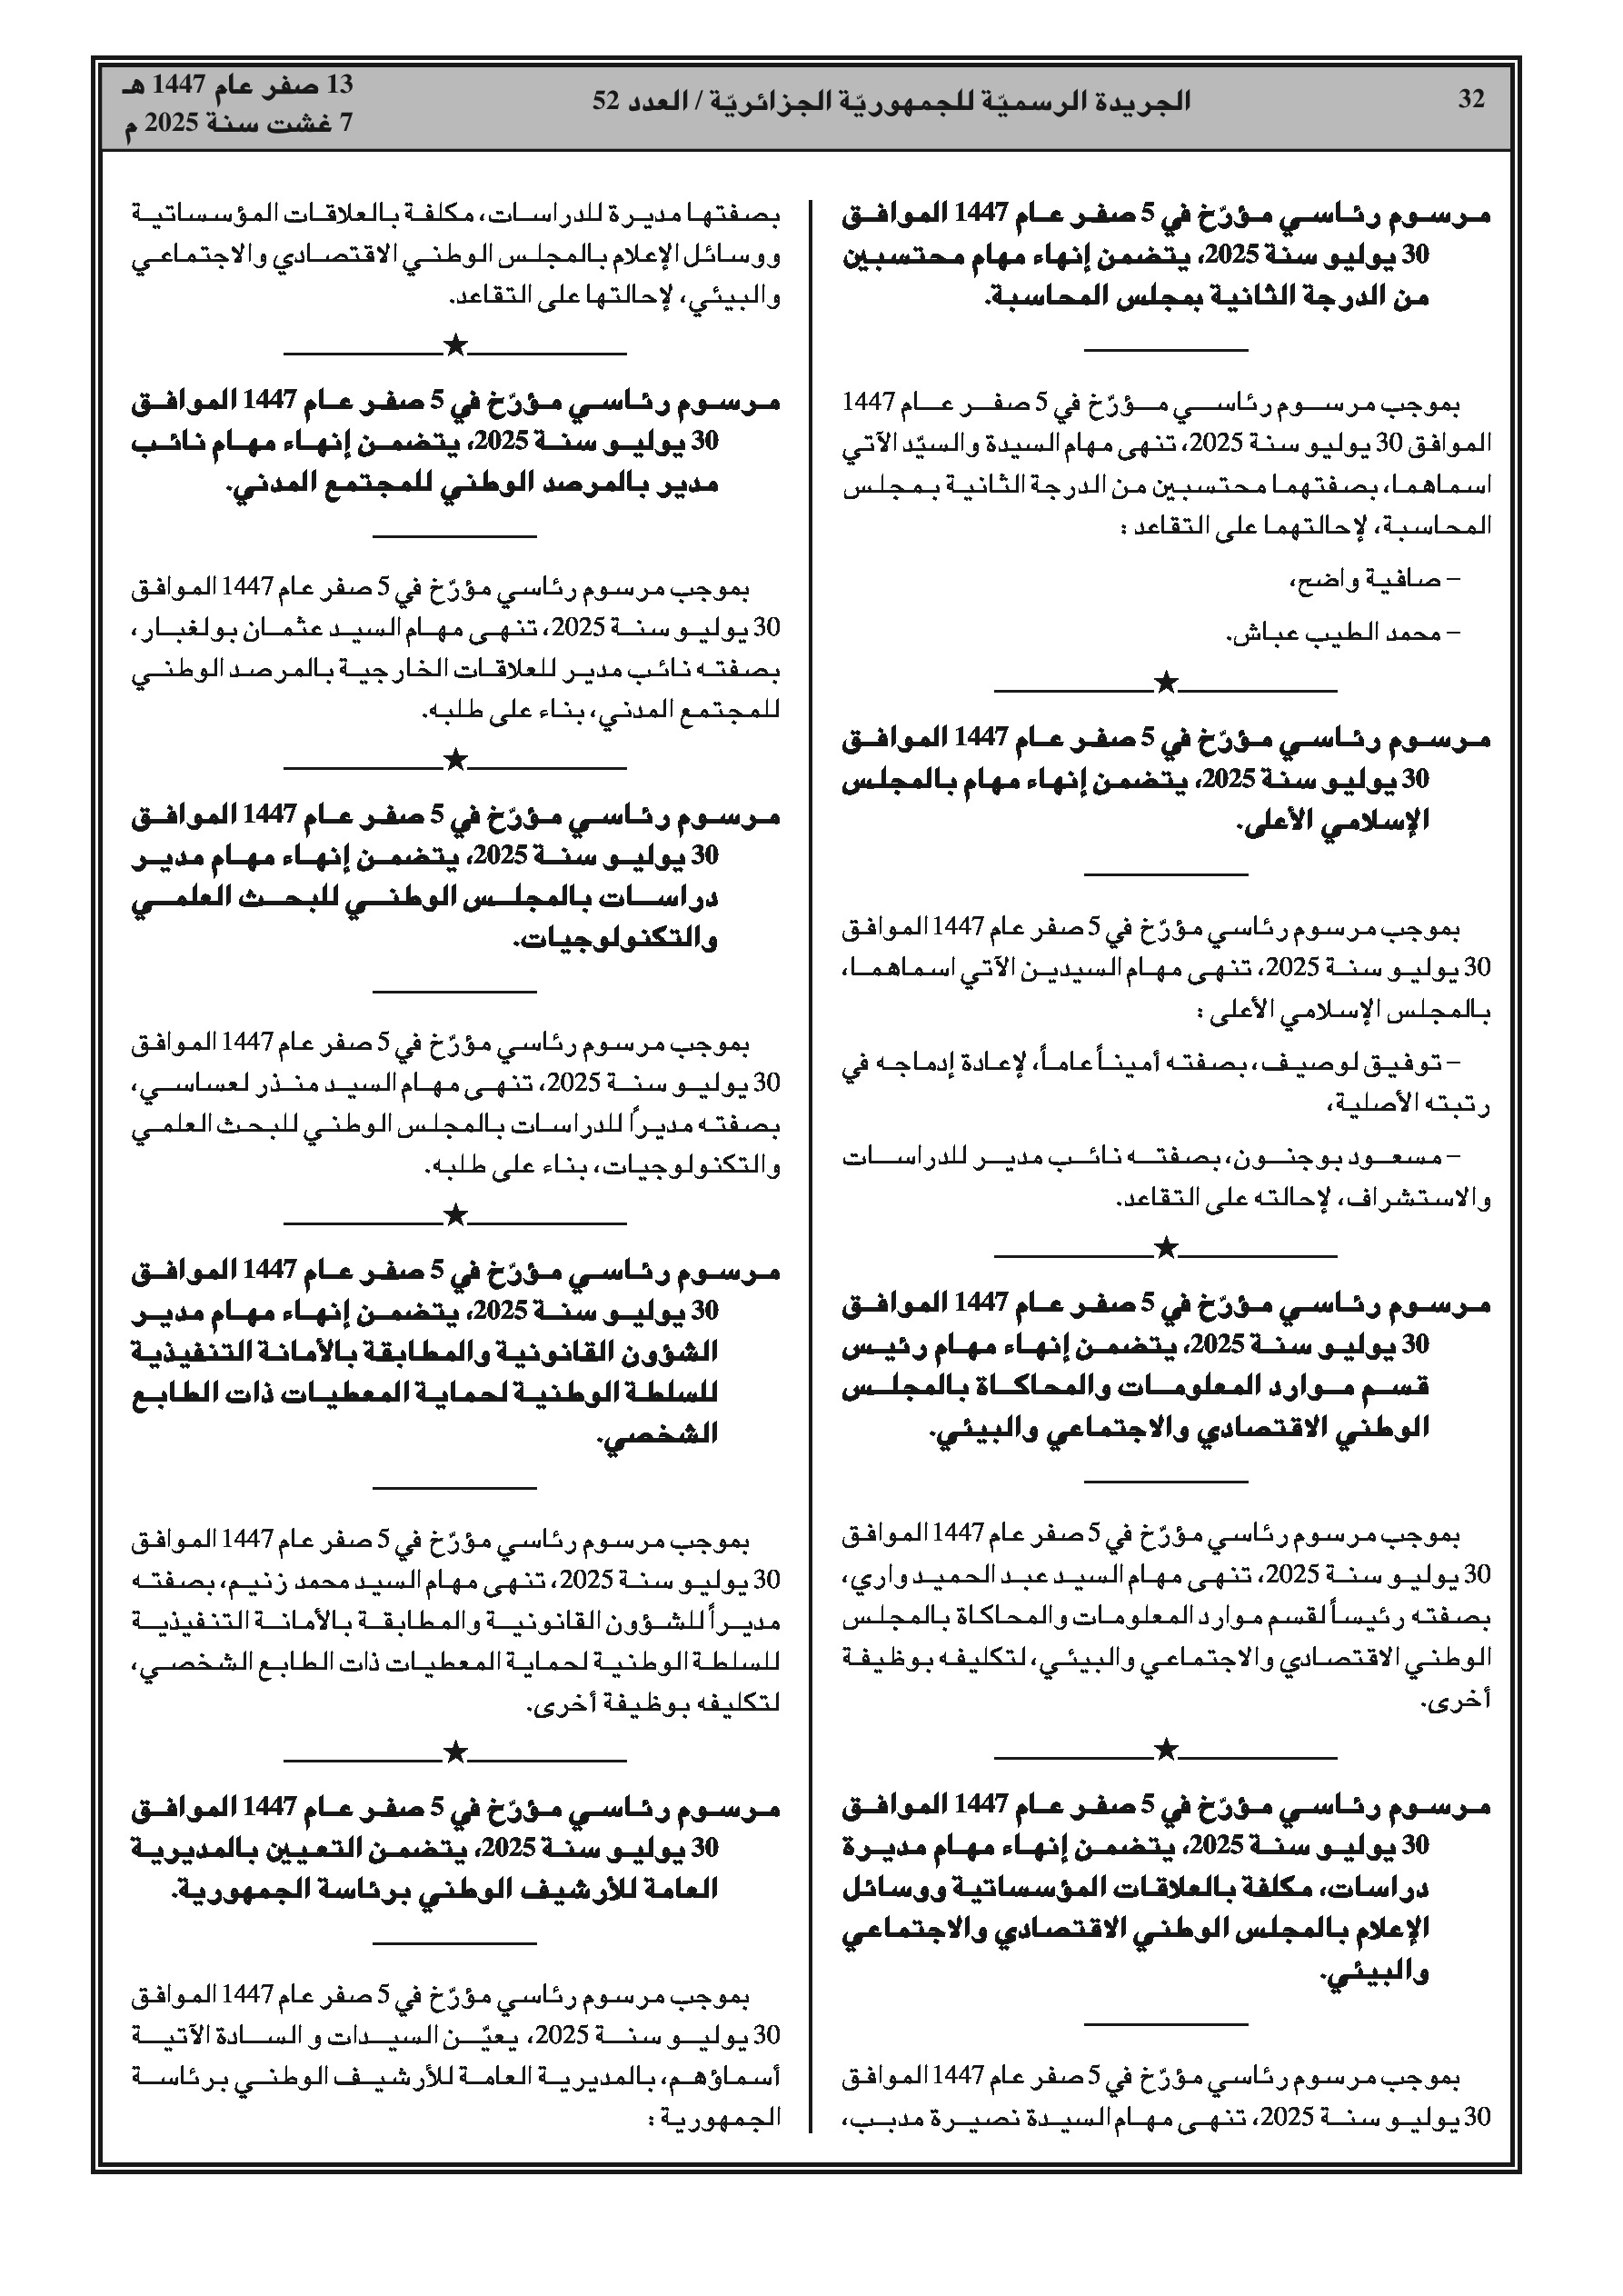 32
الجريدة الرسميّة للجمهوريّة الجزائريّة / العدد 52
13 صفر عام 1447 هـ
7 غشت سنة 2025 م
مرسوم رئاسي مؤرّخ في 5 صفر عام 1447 الموافق
30 يوليو سنة 2025، يتضمن إنهاء مهام محتسبين
من الدرجة الثانية بمجلس المحاسبة.
بموجب مرسوم رئاسي مؤرّخ في 5 صفر عام 1447
الموافق 30 يوليو سنة 2025، تنهى مهام السيدة والسيّد الآتي
اسماهما، بصفتهما محتسبين من الدرجة الثانية بمجلس
المحاسبة، لإحالتهما على التقاعد :
– صافية واضح،
– محمد الطيب عباش.
مرسوم رئاسي مؤرّخ في 5 صفر عام 1447 الموافق
30 يوليو سنة 2025، يتضمن إنهاء مهام بالمجلس
الإسلامي الأعلى.
بموجب مرسوم رئاسي مؤرّخ في 5 صفر عام 1447 الموافق
30 يوليو سنة 2025، تنهى مهام السيدين الآتي اسماهما،
بالمجلس الإسلامي الأعلى :
– توفيق لوصيف، بصفته أميناً عاماً، لإعادة إدماجه في
رتبته الأصلية،
– مسعود بوجنون، بصفته نائب مدير للدراسات
والاستشراف، لإحالته على التقاعد.
مرسوم رئاسي مؤرّخ في 5 صفر عام 1447 الموافق
30 يوليو سنة 2025، يتضمن إنهاء مهام رئيس
قسم موارد المعلومات والمحاكاة بالمجلس
الوطني الاقتصادي والاجتماعي والبيئي.
بموجب مرسوم رئاسي مؤرّخ في 5 صفر عام 1447 الموافق
30 يوليو سنة 2025، تنهى مهام السيد عبد الحميد واري،
بصفته رئيساً لقسم موارد المعلومات والمحاكاة بالمجلس
الوطني الاقتصادي والاجتماعي والبيئي، لتكليفه بوظيفة
أخرى.
مرسوم رئاسي مؤرّخ في 5 صفر عام 1447 الموافق
30 يوليو سنة 2025، يتضمن إنهاء مهام مديرة
دراسات، مكلفة بالعلاقات المؤسساتية ووسائل
الإعلام بالمجلس الوطني الاقتصادي والاجتماعي
والبيئي.
بموجب مرسوم رئاسي مؤرّخ في 5 صفر عام 1447 الموافق
30 يوليو سنة 2025، تنهى مهام السيدة نصيرة مدبب،
بصفتها مديرة للدراسات، مكلفة بالعلاقات المؤسساتية
ووسائل الإعلام بالمجلس الوطني الاقتصادي والاجتماعي
والبيئي، لإحالتها على التقاعد.
مرسوم رئاسي مؤرّخ في 5 صفر عام 1447 الموافق
30 يوليو سنة 2025، يتضمن إنهاء مهام نائب
مدير بالمرصد الوطني للمجتمع المدني.
بموجب مرسوم رئاسي مؤرّخ في 5 صفر عام 1447 الموافق
30 يوليو سنة 2025، تنهى مهام السيد عثمان بولغبار،
بصفته نائب مدير للعلاقات الخارجية بالمرصد الوطني
للمجتمع المدني، بناء على طلبه.
مرسوم رئاسي مؤرّخ في 5 صفر عام 1447 الموافق
30 يوليو سنة 2025، يتضمن إنهاء مهام مدير
دراسات بالمجلس الوطني للبحث العلمي
والتكنولوجيات.
بموجب مرسوم رئاسي مؤرّخ في 5 صفر عام 1447 الموافق
30 يوليو سنة 2025، تنهى مهام السيد منذر لعساسي،
بصفته مديراً للدراسات بالمجلس الوطني للبحث العلمي
والتكنولوجيات، بناء على طلبه.
مرسوم رئاسي مؤرّخ في 5 صفر عام 1447 الموافق
30 يوليو سنة 2025، يتضمن إنهاء مهام مدير
الشؤون القانونية والمطابقة بالأمانة التنفيذية
للسلطة الوطنية لحماية المعطيات ذات الطابع
الشخصي.
بموجب مرسوم رئاسي مؤرّخ في 5 صفر عام 1447 الموافق
30 يوليو سنة 2025، تنهى مهام السيد محمد زنيم، بصفته
مديراً للشؤون القانونية والمطابقة بالأمانة التنفيذية
للسلطة الوطنية لحماية المعطيات ذات الطابع الشخصي،
لتكليفه بوظيفة أخرى.
مرسوم رئاسي مؤرّخ في 5 صفر عام 1447 الموافق
30 يوليو سنة 2025، يتضمن التعيين بالمديرية
العامة للأرشيف الوطني برئاسة الجمهورية.
بموجب مرسوم رئاسي مؤرّخ في 5 صفر عام 1447 الموافق
30 يوليو سنة 2025، يعيّن السيدات و السادة الآتية
أسماؤهم، بالمديرية العامة للأرشيف الوطني برئاسة
الجمهورية :